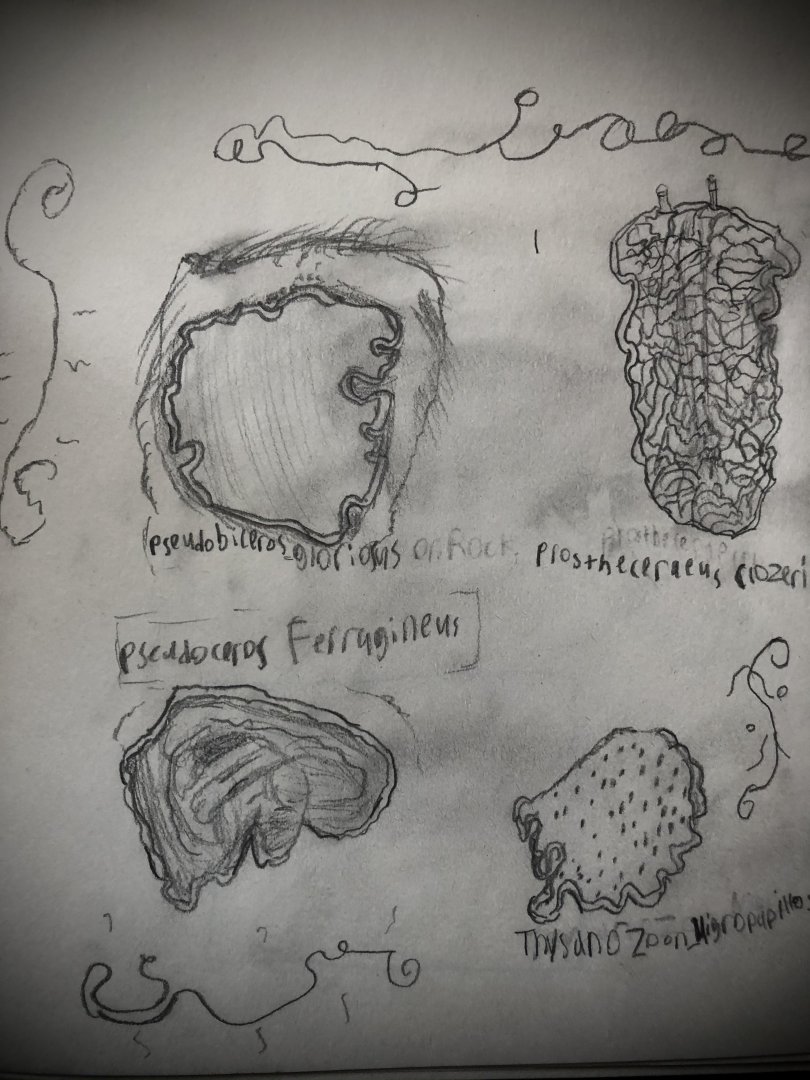 pseudobiceros gloriosus on Rock
prostheceraeus crozeri
pseudoceros Ferrugineus
Thysano Zoon Nigropapillos